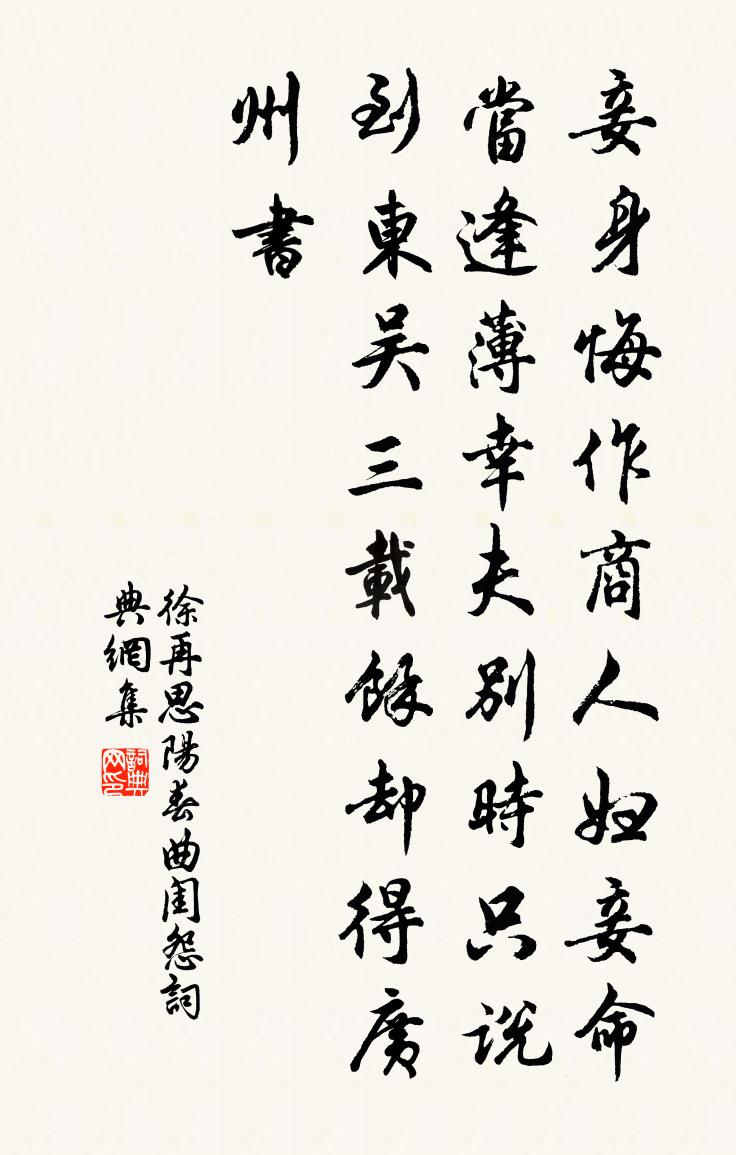 妾身悔作商人妇妾命
當逢薄幸夫別時只说
到東吴三載餘却得廣
州書
徐再思陽春曲闺怨詞
典網集
詞典网印